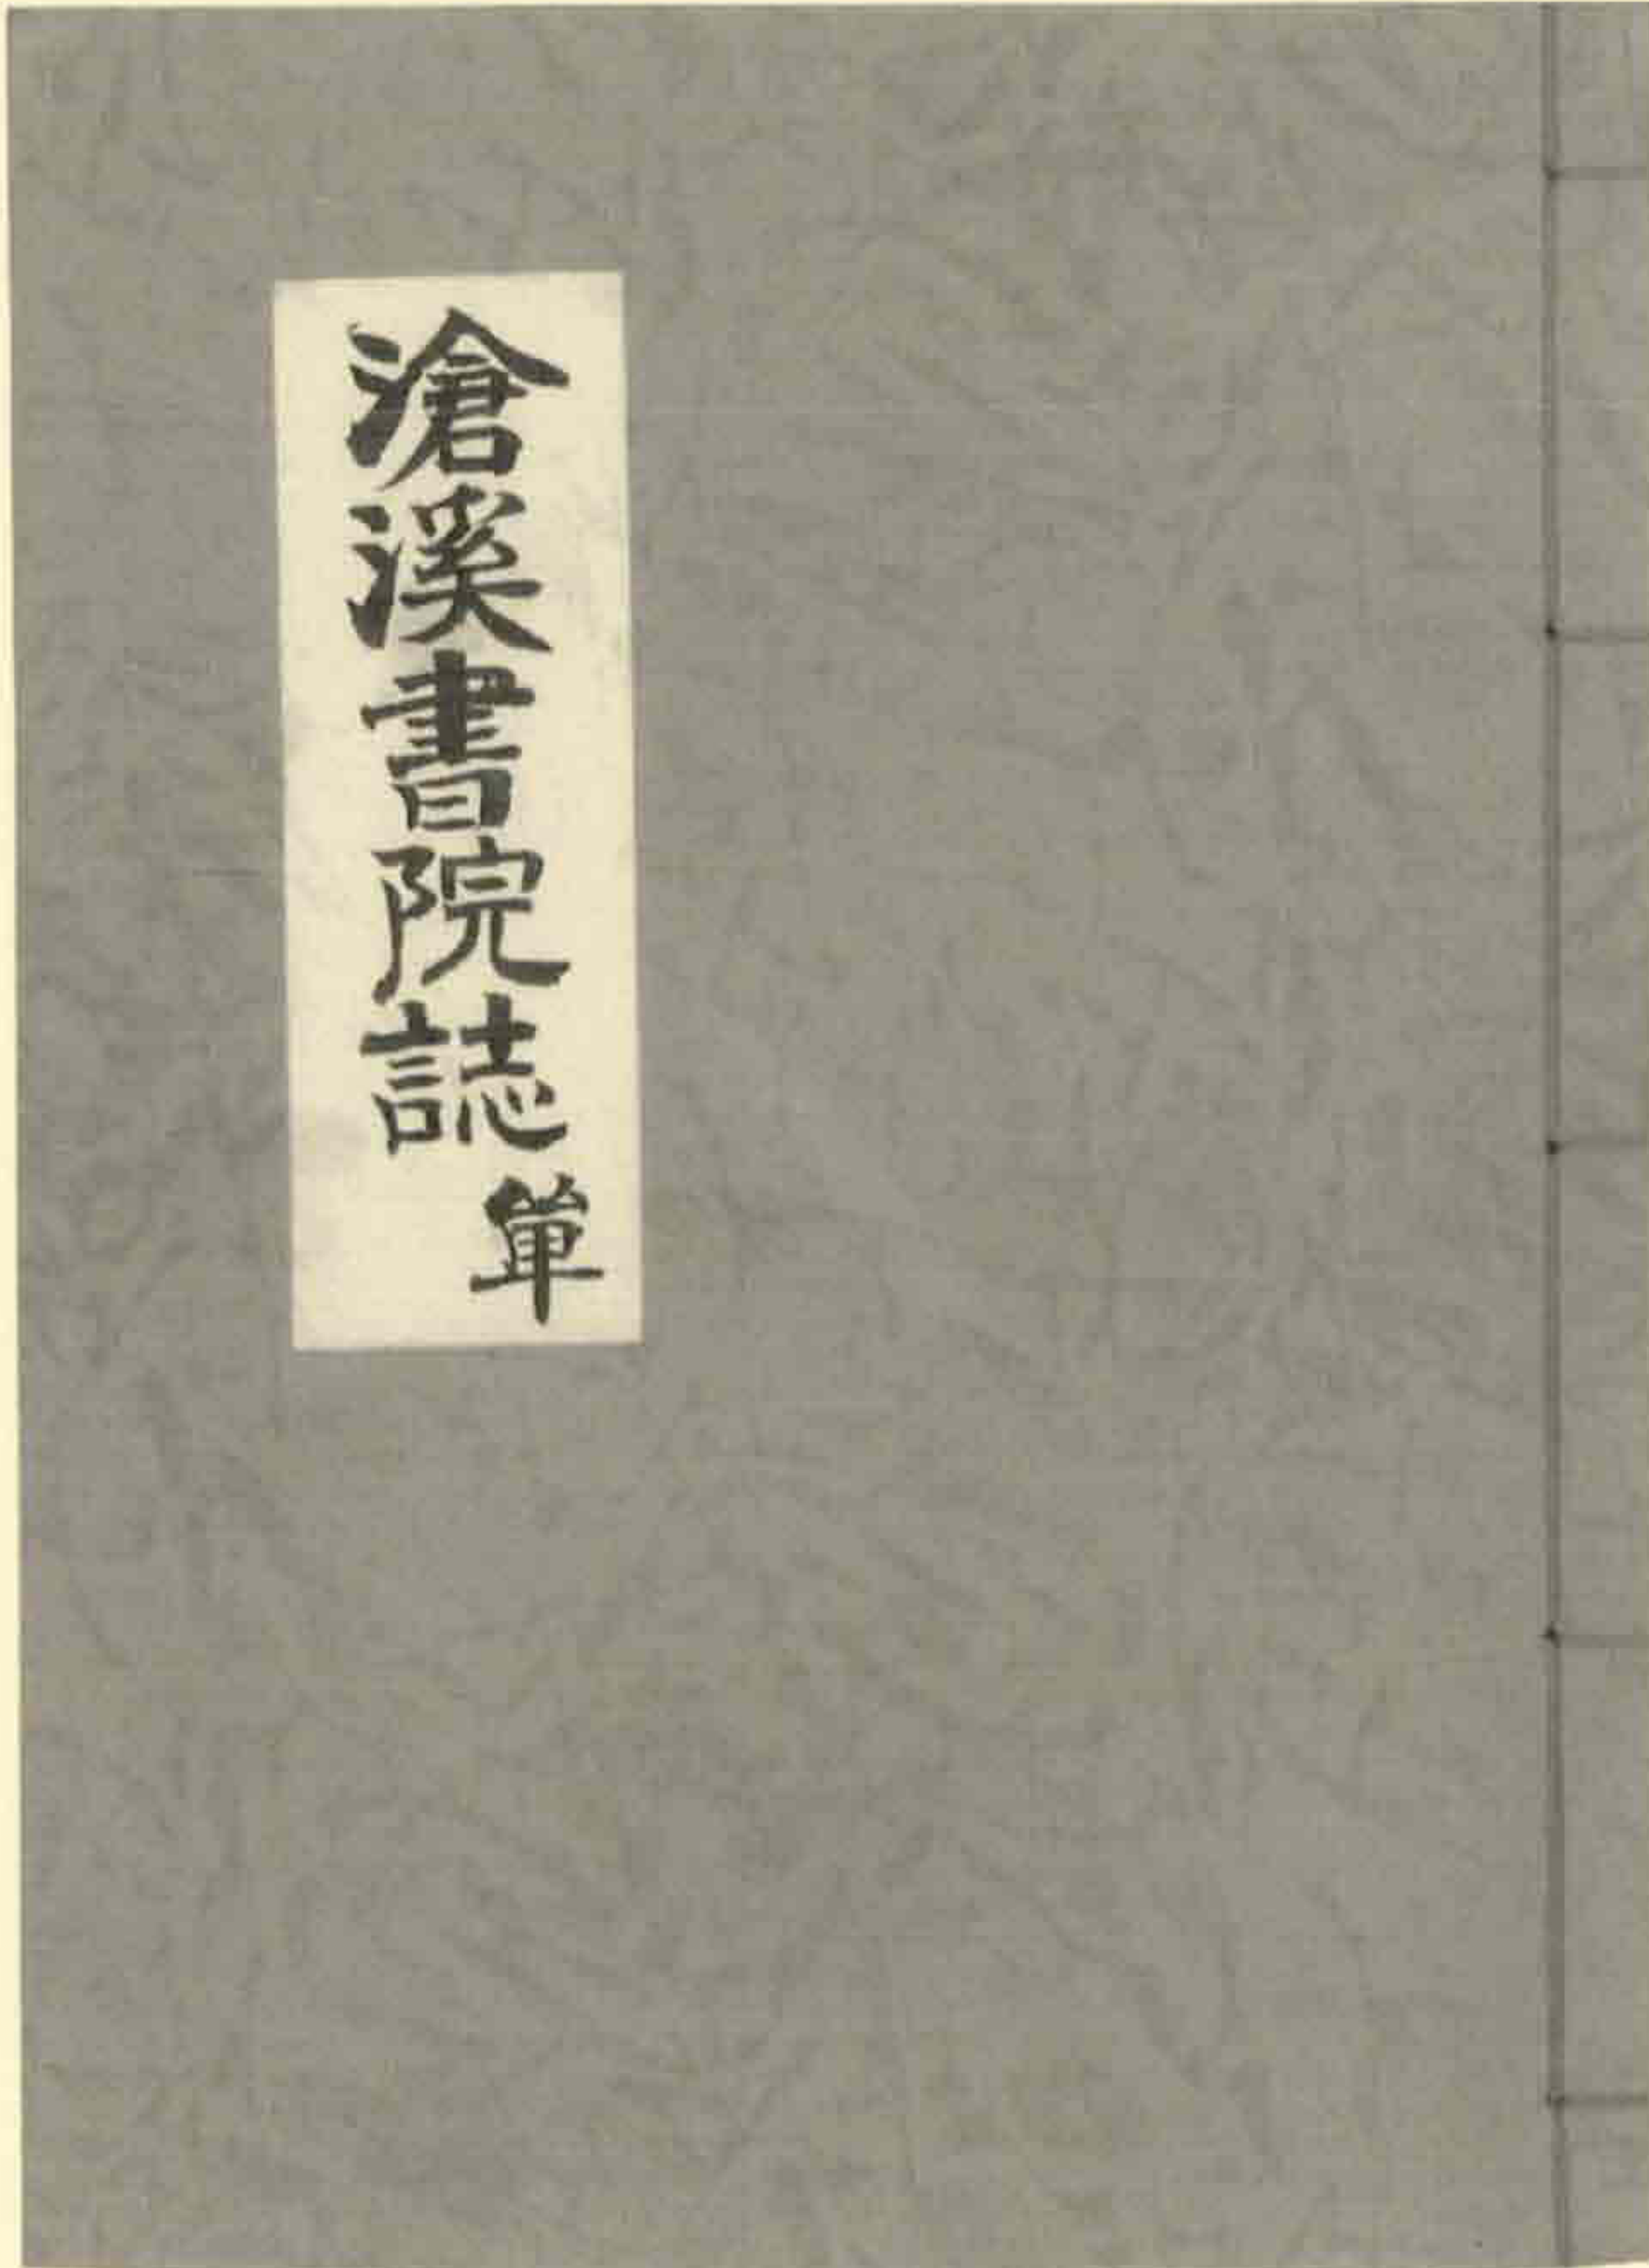 滄溪書院誌
單